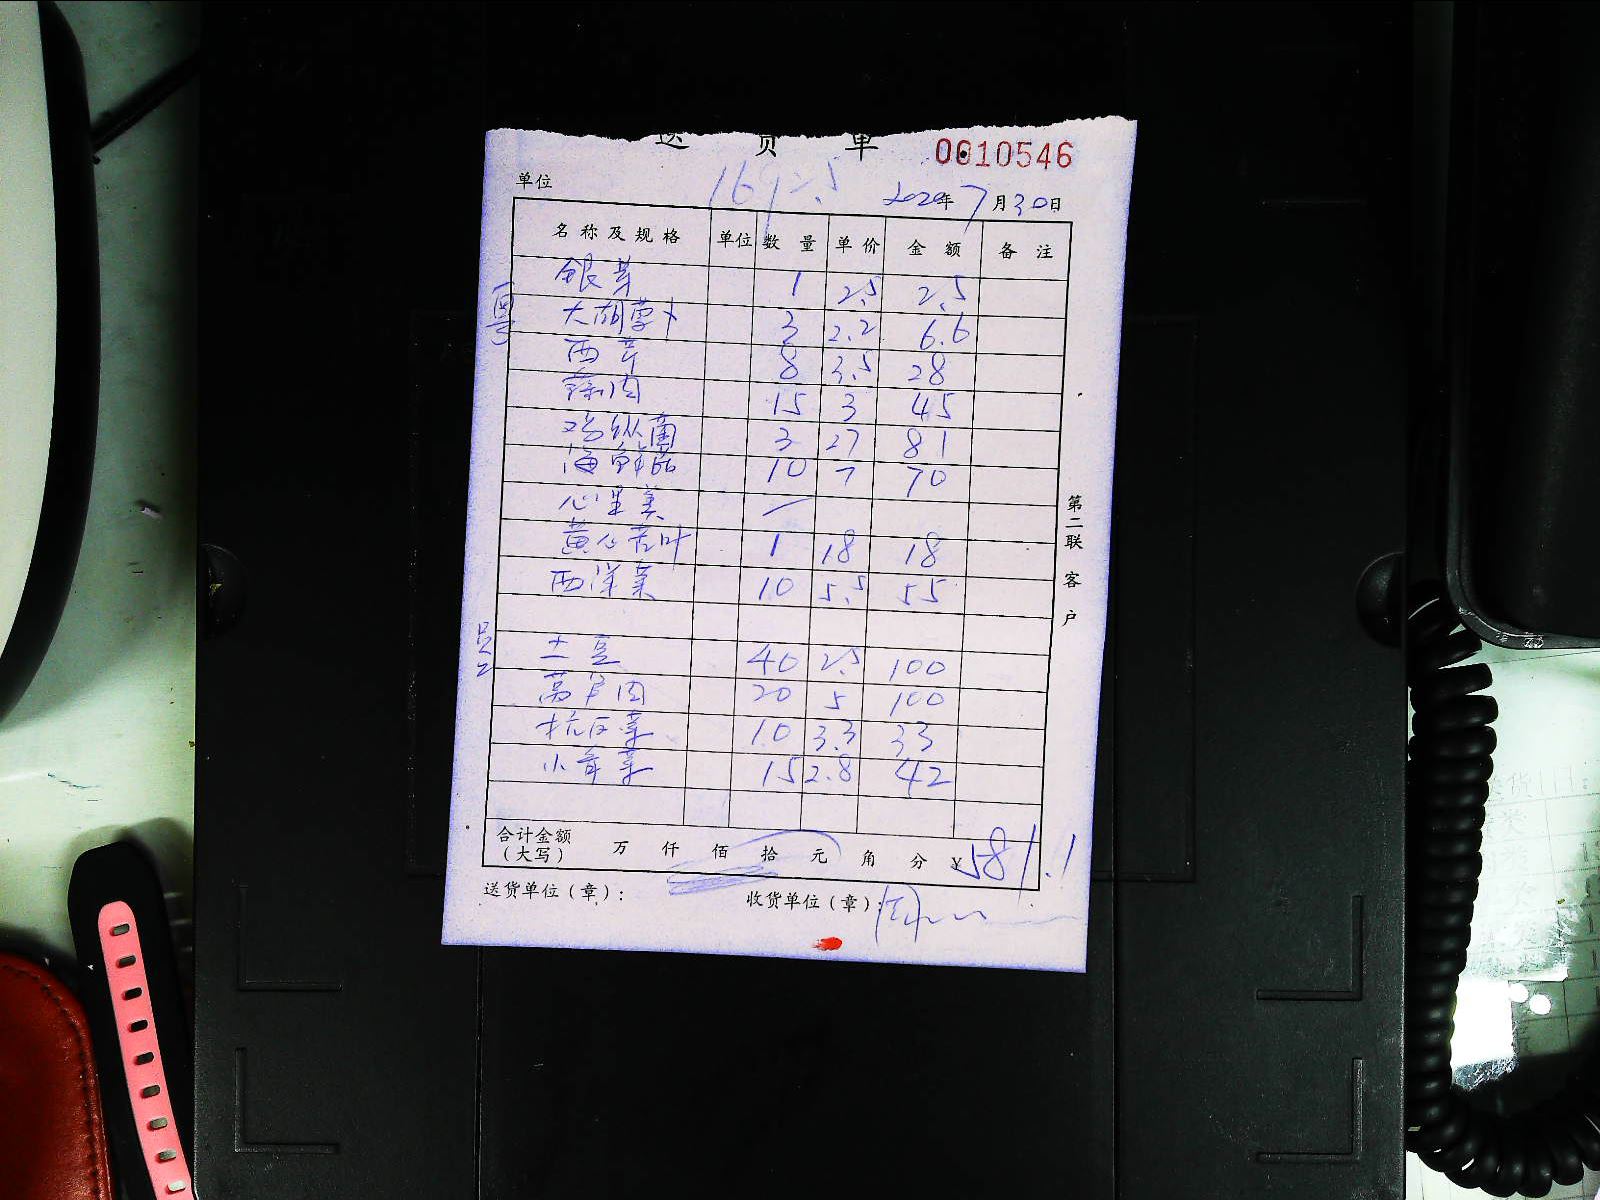 送 货 单 0010546
1692.5
单位 2020年7月30日
名称及规格 单位 数量 单价 金额 备注
粤
银芽 1 2.5 2.5
大胡萝卜 3 2.2 6.6
西芹 8 3.5 28
蒜肉 15 3 45
鸡枞菌 3 27 81
海鲜菇 10 7 70
心里美 —
黄心苦叶 1 18 18
西洋菜 10 5.5 55
员工
土豆 40 2.5 100
莴笋肉 20 5 100
杭白菜 10 3.3 33
小青菜 15 2.8 42
合计金额（大写） 万 仟 佰 拾 元 角 分 ¥581.1
送货单位（章）： 收货单位（章）：
第二联 客户